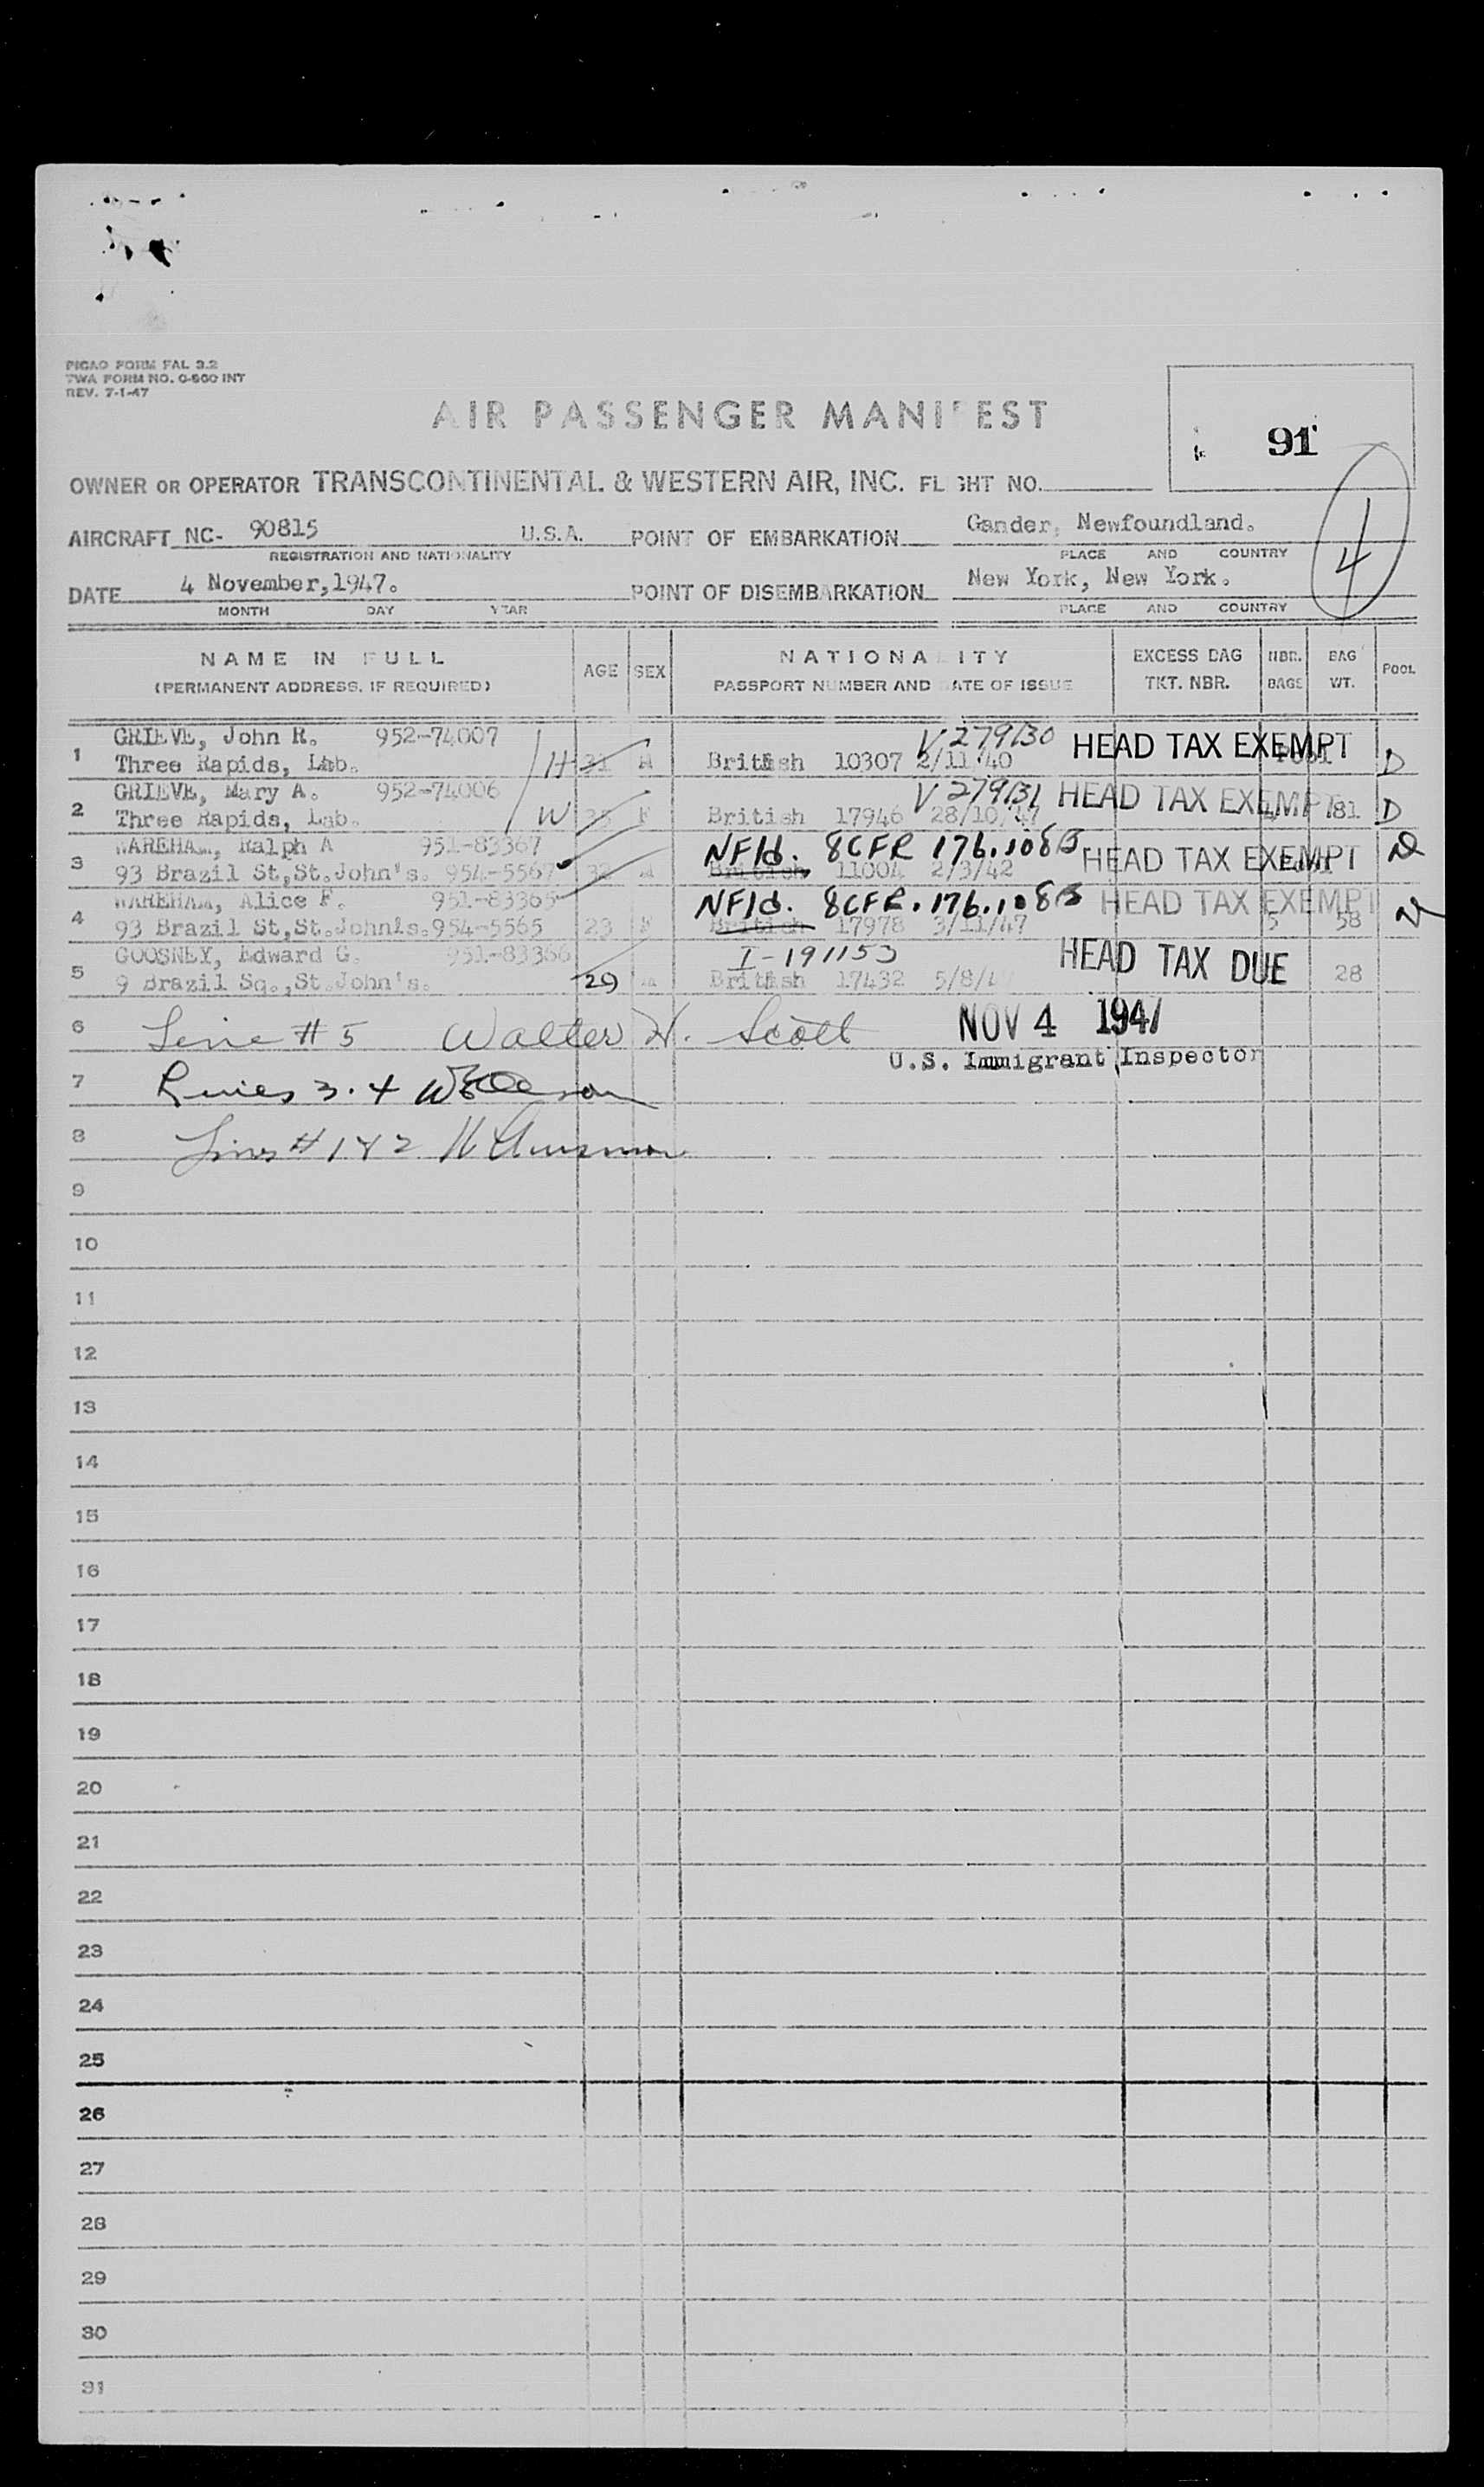 PICAO FORM FAL 3.2
TWA FORM NO. O-800 INT
REV. 7-1-47
AIR PASSENGER MANIFEST
91
OWNER OR OPERATOR TRANSCONTINENTAL & WESTERN AIR, INC. FLIGHT NO.
4
AIRCRAFT NC- 90815 U.S.A. POINT OF EMBARKATION Gander, Newfoundland.
REGISTRATION AND NATIONALITY PLACE AND COUNTRY
DATE 4 November,1947. POINT OF DISEMBARKATION New York, New York.
MONTH DAY YEAR PLACE AND COUNTRY
NAME IN FULL AGE SEX NATIONALITY EXCESS BAG NBR. BAG POOL
(PERMANENT ADDRESS, IF REQUIRED) PASSPORT NUMBER AND DATE OF ISSUE TKT. NBR. BAGS WT.
GRIEVE, John R. 952-74007 V 279130 HEAD TAX EXEMPT
1 Three Rapids, Lab. H 31 M British 10307 2/11/40 D
GRIEVE, Mary A. 952-74006 V 279131 HEAD TAX EXEMPT
2 Three Rapids, Lab. W F British 17946 28/10/47 81 D
WAREHAM, Ralph A 951-83367 NFld. 8CFR 176.108B HEAD TAX EXEMPT
3 93 Brazil St,St.John's. 954-5567 32 M British 11004 2/3/42
WAREHAM, Alice F. 951-83365 NFld. 8CFR.176.108B HEAD TAX EXEMPT
4 93 Brazil St,St.John's.954-5565 23 F British 17978 3/11/47 5 58
GOOSNEY, Edward G. 951-83366 I-191153 HEAD TAX DUE
5 9 Brazil Sq.,St.John's. 29 M British 17432 5/8/4 28
6 Line # 5 Walter H. Scott NOV 4 1947
U.S. Immigrant Inspector
7 Lines 3.4
8 Lines # 1 & 2
9
10
11
12
13
14
15
16
17
18
19
20
21
22
23
24
25
26
27
28
29
30
31